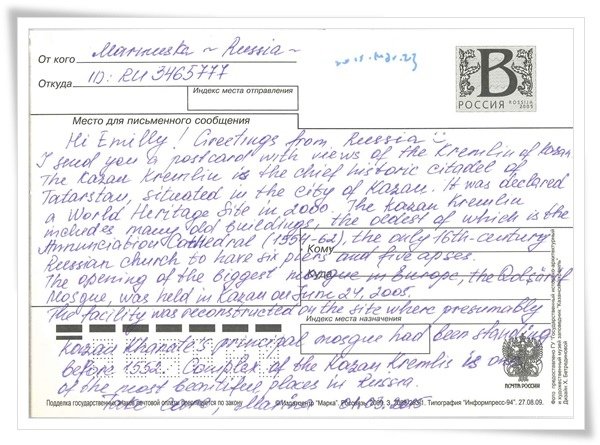 От кого Marinuska ~ Russia ~
2015. Mar. 23
Откуда ID: RU 3465777
Индекс места отправления
B
РОССИЯ ROSSIJA 2009
Место для письменного сообщения
Hi Emilly! Greetings from Russia
I send you a postcard with views of the Kremlin of Kazan
The Kazan Kremlin is the chief historic citadel of
Tatarstan, situated in the city of Kazan. It was declared
a World Heritage Site in 2000. The Kazan Kremlin
includes many old buildings, the oldest of which is the
Annunciation Cathedral (1554-62), the only 16th-century
Russian church to have six piers and five apses.
Кому
The opening of the biggest mosque in Europe, the Qolşärif
Куда
Mosque, was held in Kazan on June 24, 2005.
The facility was reconstructed on the site where presumably
Индекс места назначения
Kazan Khanate's principal mosque had been standing
before 1552. Complex of the Kazan Kremlin is one
of the most beautiful places in Russia.
Take care,
ПОЧТА РОССИИ
Подделка государственных знаков почтовой оплаты преследуется по закону
© Издатцентр "Марка", Россия, 2009. Типография "Информпресс-94". 27.08.09.